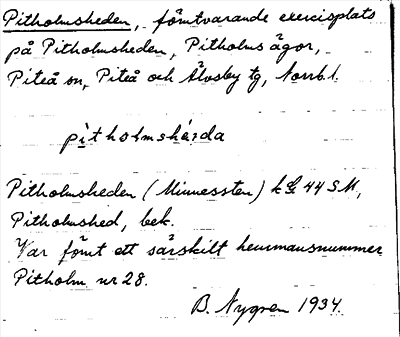 Pitholmsheden, förutvarande exercisplats
på Pitholmsheden, Pitholms ägor,
Piteå sn, Piteå och Älvsby tg, Norrb. l.
pitholmshę́da
Pitholmsheden (Minnessten) 44 SM,
Pitholmshed, bek.
Var förut ett särskilt hemmansnummer
Pitholm nr 28.
B. Nygren 1934.